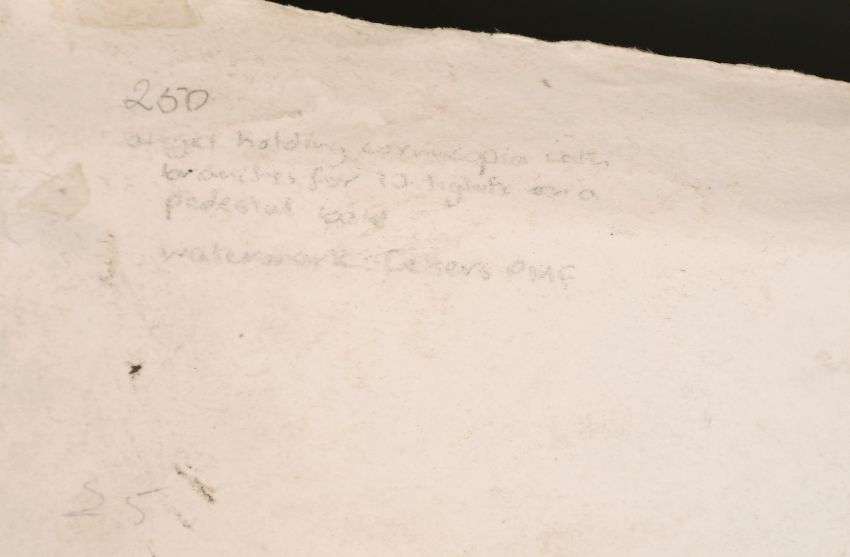 250
angel holding cornucopia with
branches for 10 lights on a
pedestal
watermark: letters PMF
25